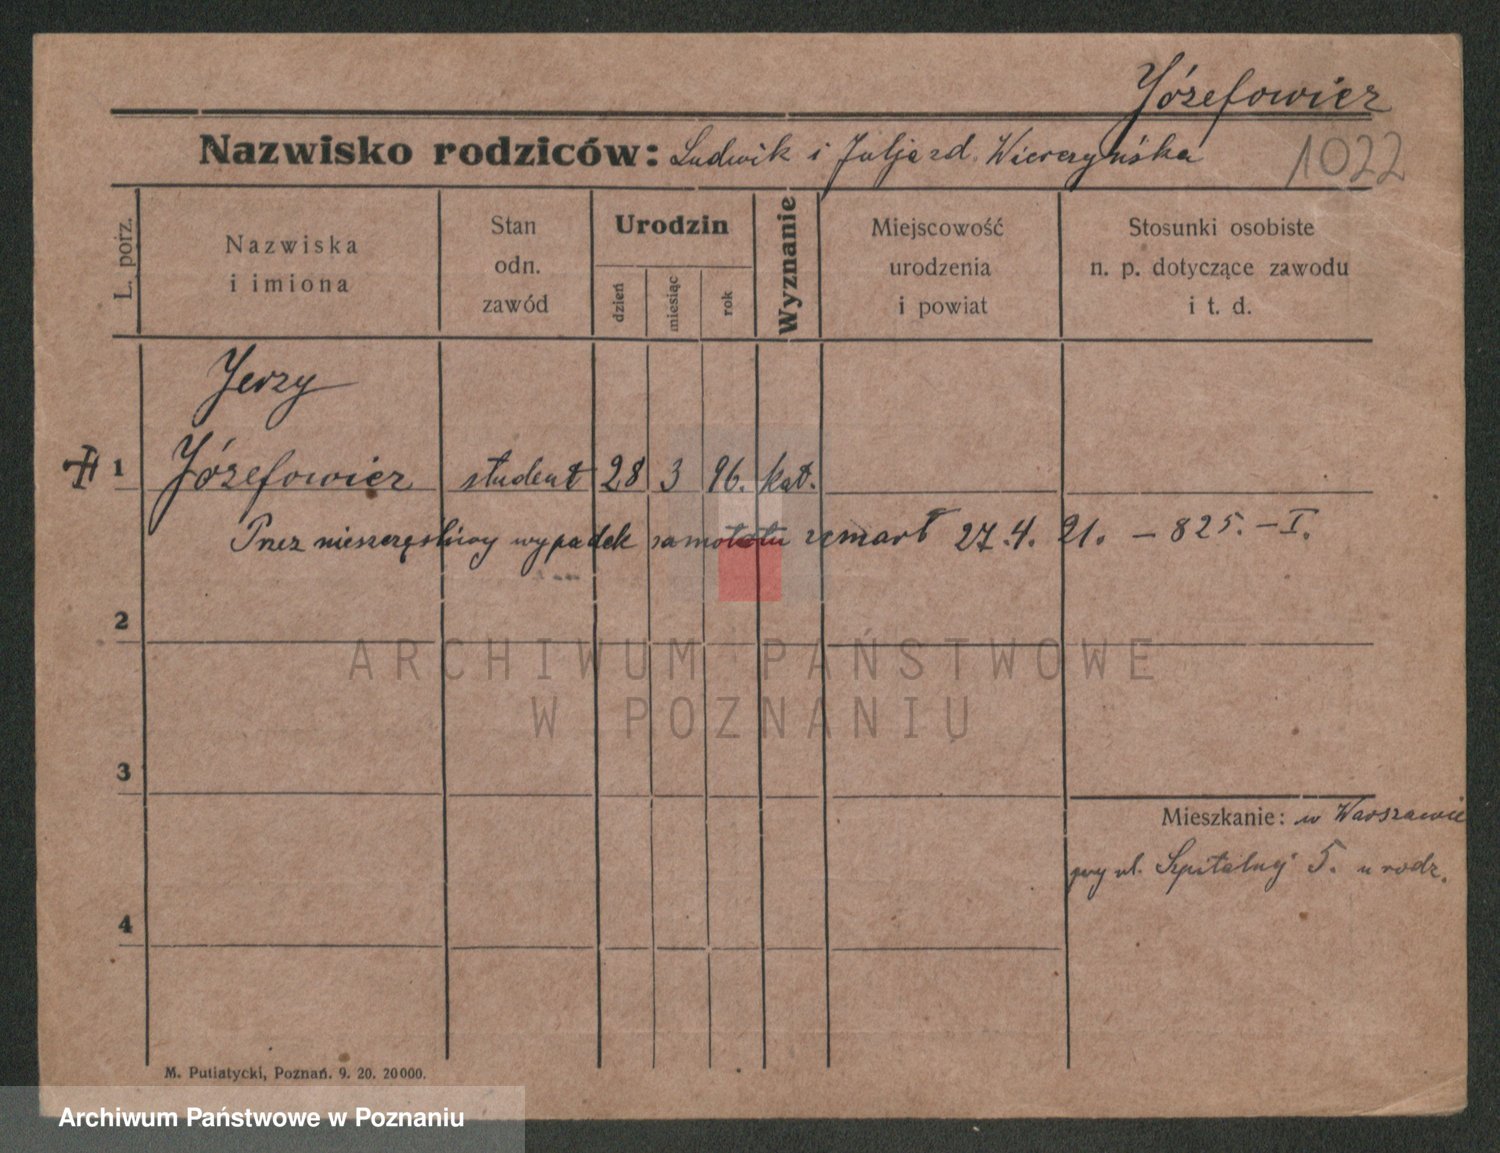 Józefowicz
Nazwisko rodziców: Ludwik i Julja zd. Wierczyńska
1022
L. porz.
Nazwiska
i imiona
Stan
odn.
zawód
Urodzin
dzień
miesiąc
rok
Wyznanie
Miejscowość
urodzenia
i powiat
Stosunki osobiste
n. p. dotyczące zawodu
i t. d.
Jerzy
1 Józefowicz student 28 3 96. kat.
Przez nieszczęśliwy wypadek samolotu zmarł 27.4.21. – 825. – I.
2
ARCHIWUM PAŃSTWOWE
W POZNANIU
3
Mieszkanie: w Warszawie
przy ul. Szpitalnej 5. u rodz.
4
M. Putiatycki, Poznań. 9. 20. 20000.
Archiwum Państwowe w Poznaniu